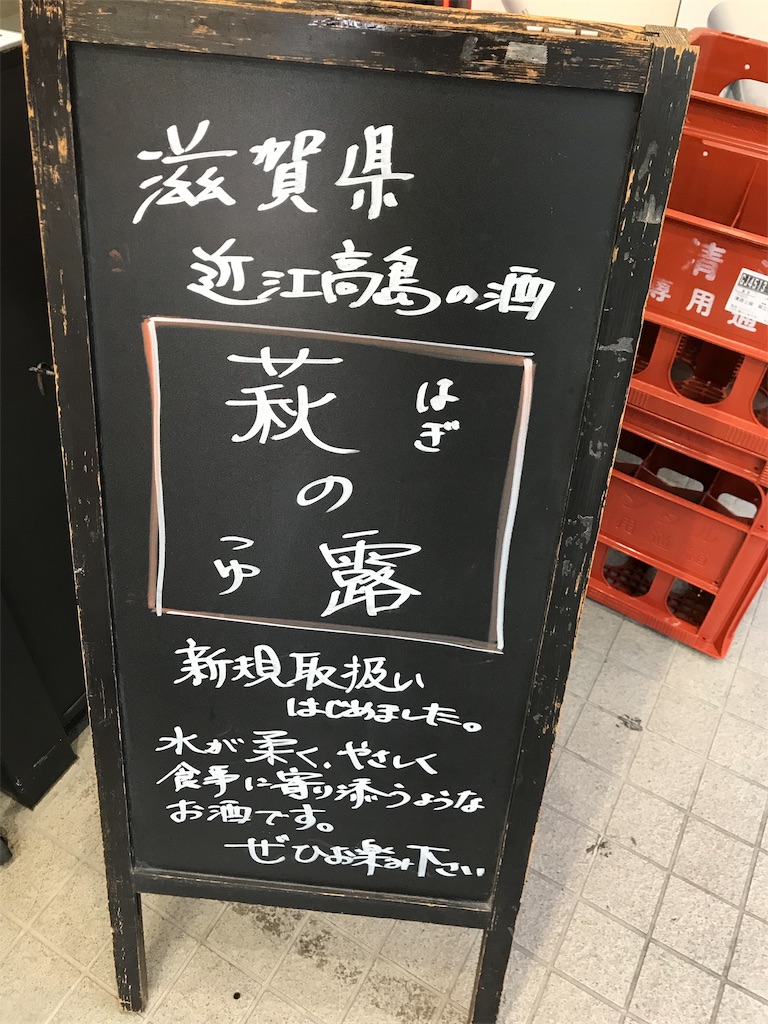 滋賀県
近江高島の酒
萩の露
はぎ
つゆ
新規取扱い
はじめました。
水が柔く、やさしく
食事に寄り添うような
お酒です。
ぜひお楽み下さい
清
専用通